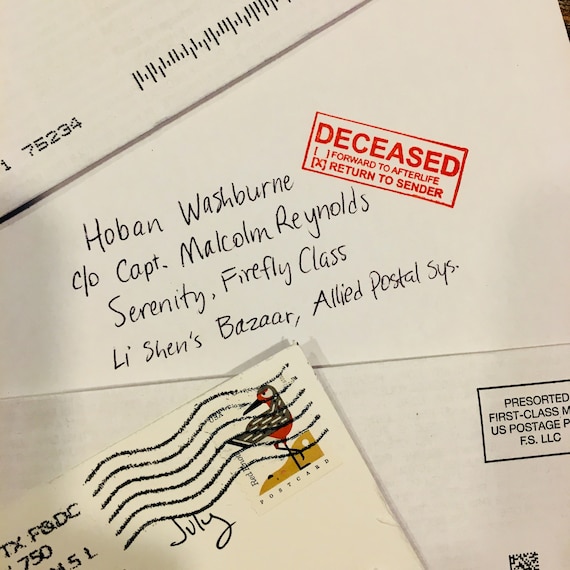 1 75234
DECEASED
[ ] FORWARD TO AFTERLIFE
[X] RETURN TO SENDER
Hoban Washburne
c/o Capt. Malcolm Reynolds
Serenity, Firefly Class
Li Shen's Bazaar, Allied Postal Sys.
PRESORTED
FIRST-CLASS M
US POSTAGE P
F.S. LLC
POSTCARD
TX P&DC
750
5 L
July